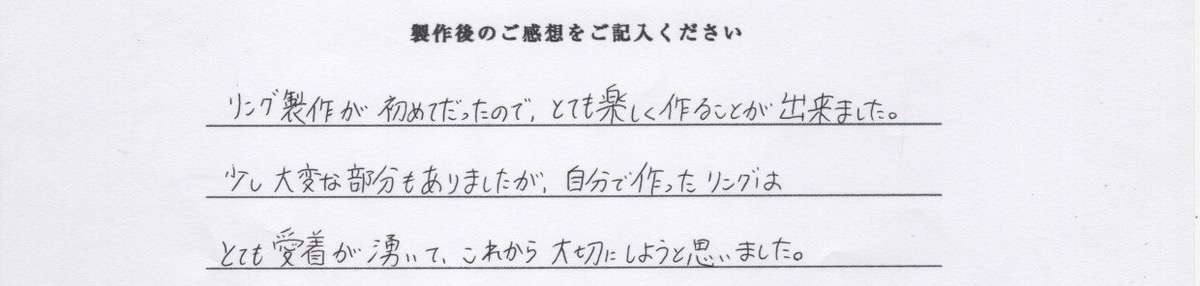 製作後のご感想をご記入ください
リング製作が初めてだったので、とても楽しく作ることが出来ました。
少し大変な部分もありましたが、自分で作ったリングは
とても愛着が湧いて、これから大切にしようと思いました。